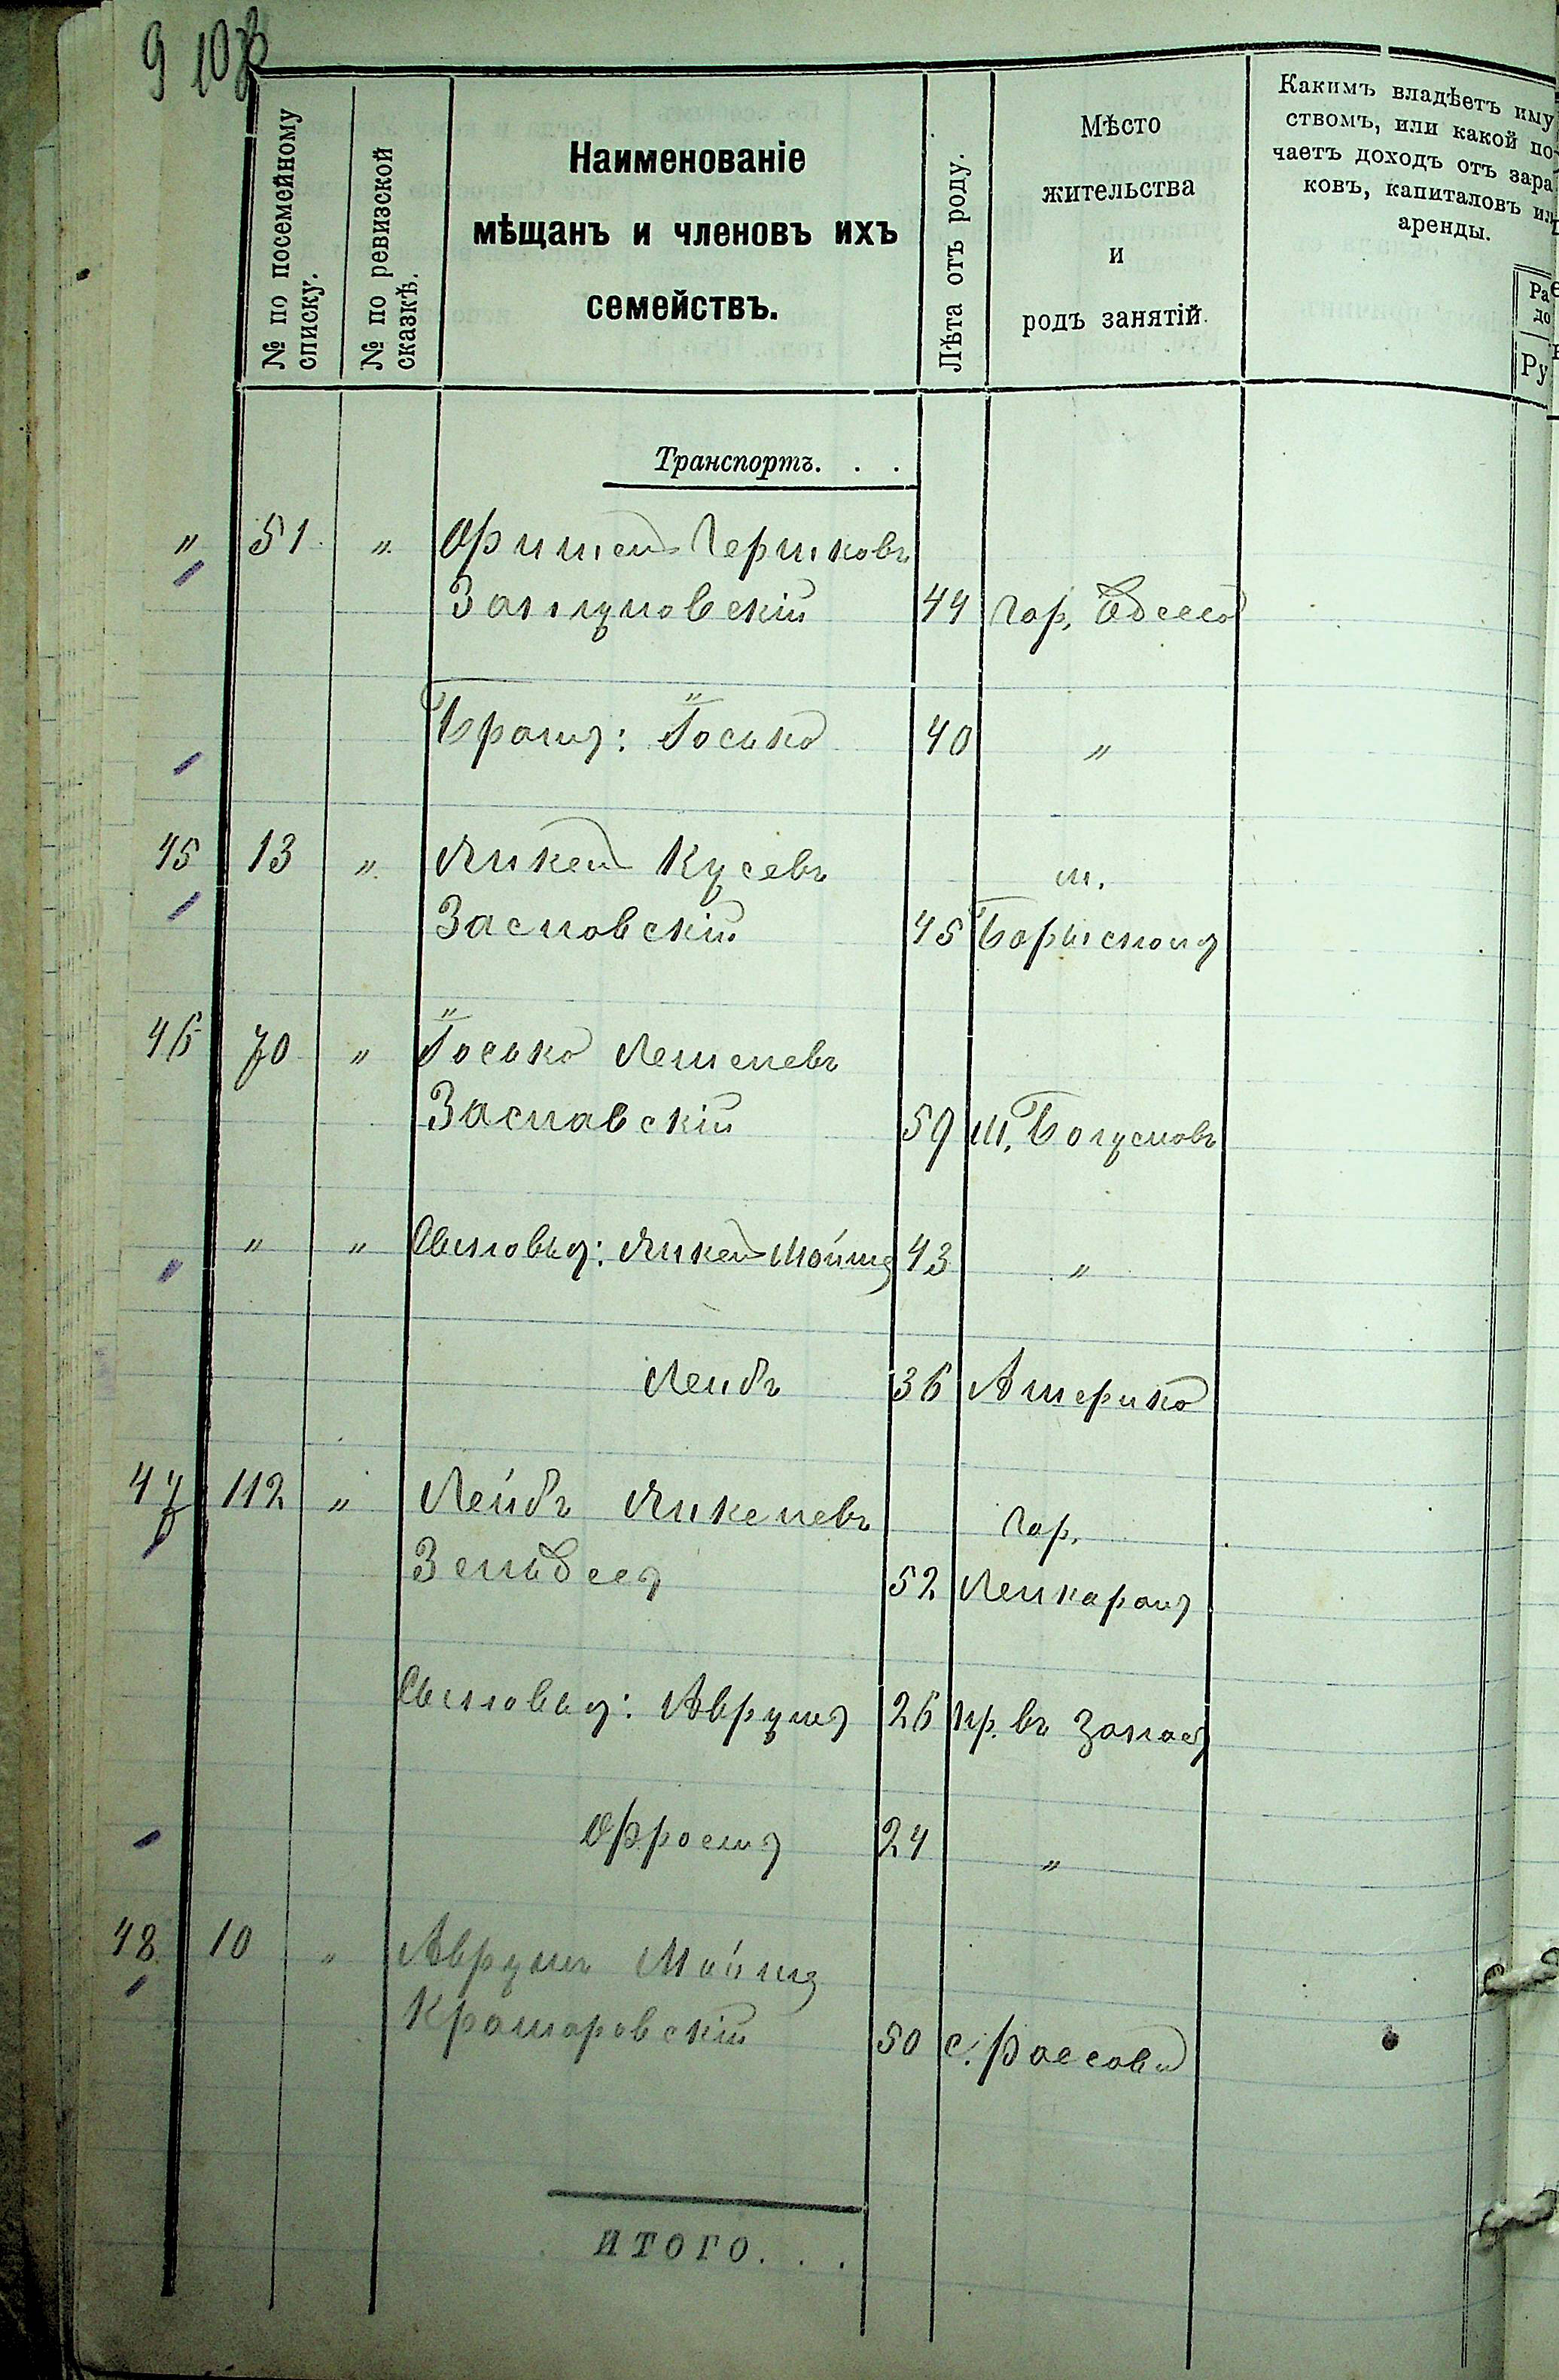 9 10
№ по посемейному
списку.
№ по ревизской
сказкѣ.
Наименованіе
мѣщанъ и членовъ ихъ
семействъ.
Лѣта отъ роду.
Мѣсто
жительства
и
родъ занятій.
Какимъ владѣетъ иму
ствомъ, или какой по
чаетъ доходъ отъ зара
ковъ, капиталовъ ил
аренды.
Ра
до
Ру
Транспортъ. . .
" 51 " Фишель Гершковъ
44 гор. Одесса
Братъ: Іосько 40 "
45 13 " Янкель Кусевъ м.
Заславскій 45 Борисполь
46 70 " Іосько Лейзеровъ
Заславскій 59 м. Богуславъ
" " Сыновья: Янкель Мойше 43 "
Лейбъ 36 Америка
47 112 " Лейбъ Янкелевъ гор.
52 Ленкорань
Сыновья: Аврумъ 26 пр. въ запасъ
Фроимъ 24 "
48 10 " Аврумъ Мойше
Крамаровскій 50 с. Рассава
ИТОГО. . .